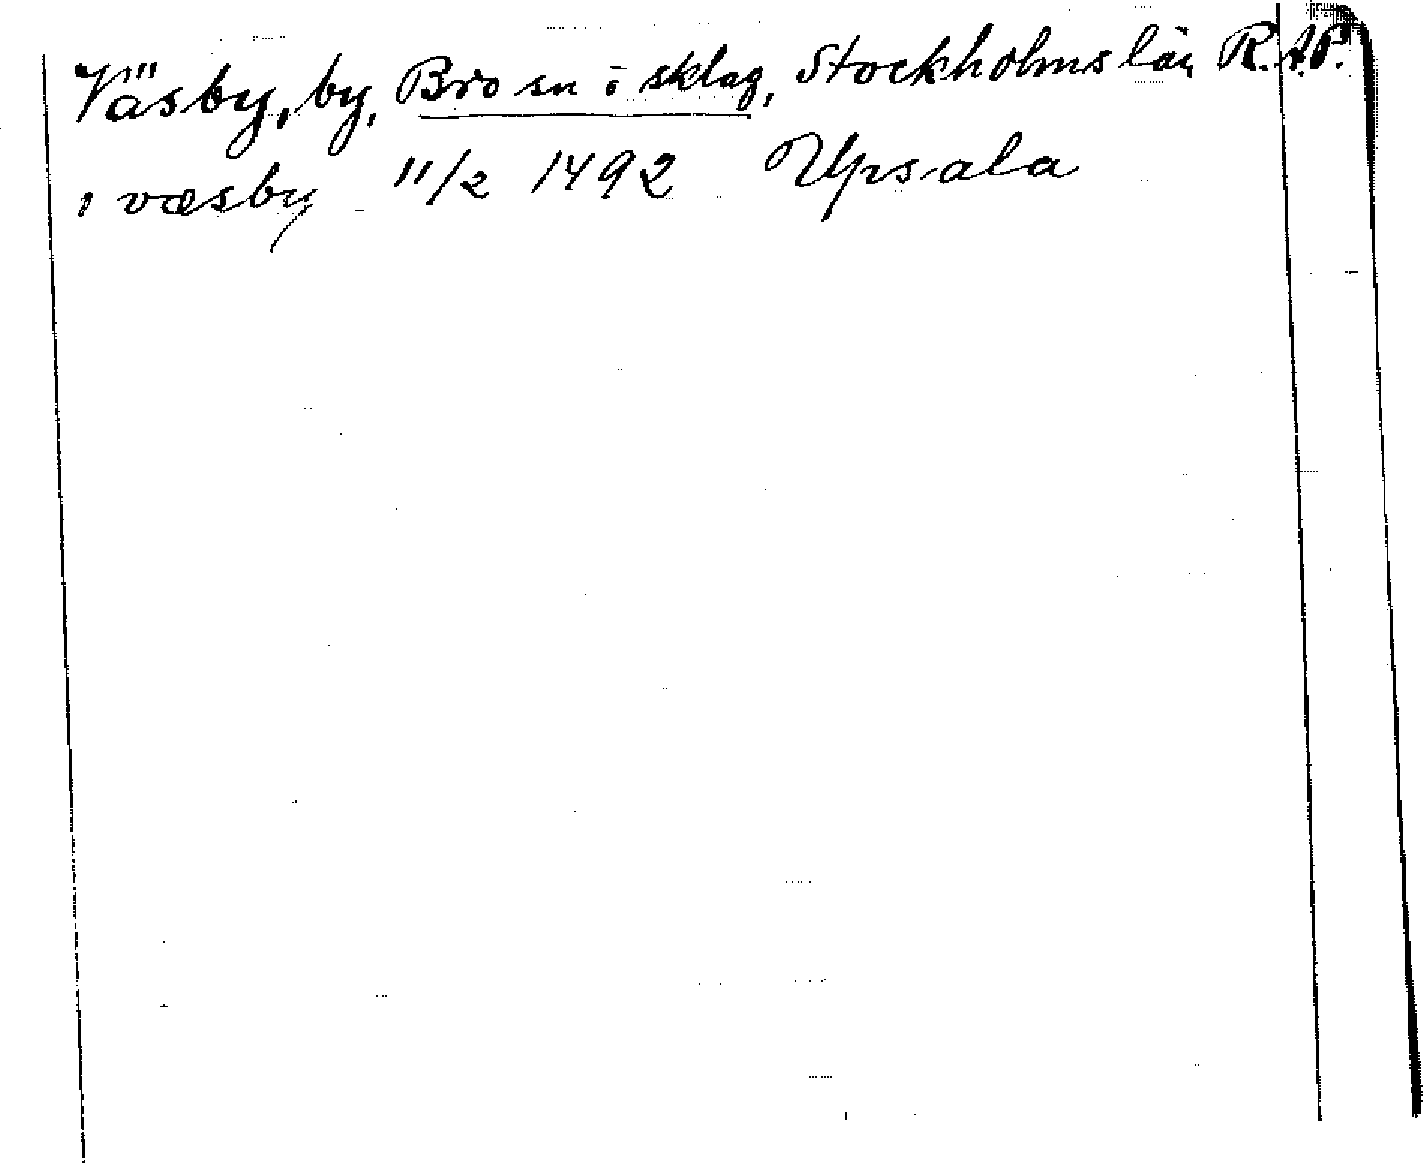 Väsby, by, Bro sn o sklag, Stockholms län R.A.P.
i væsby 11/2 1492 Upsala